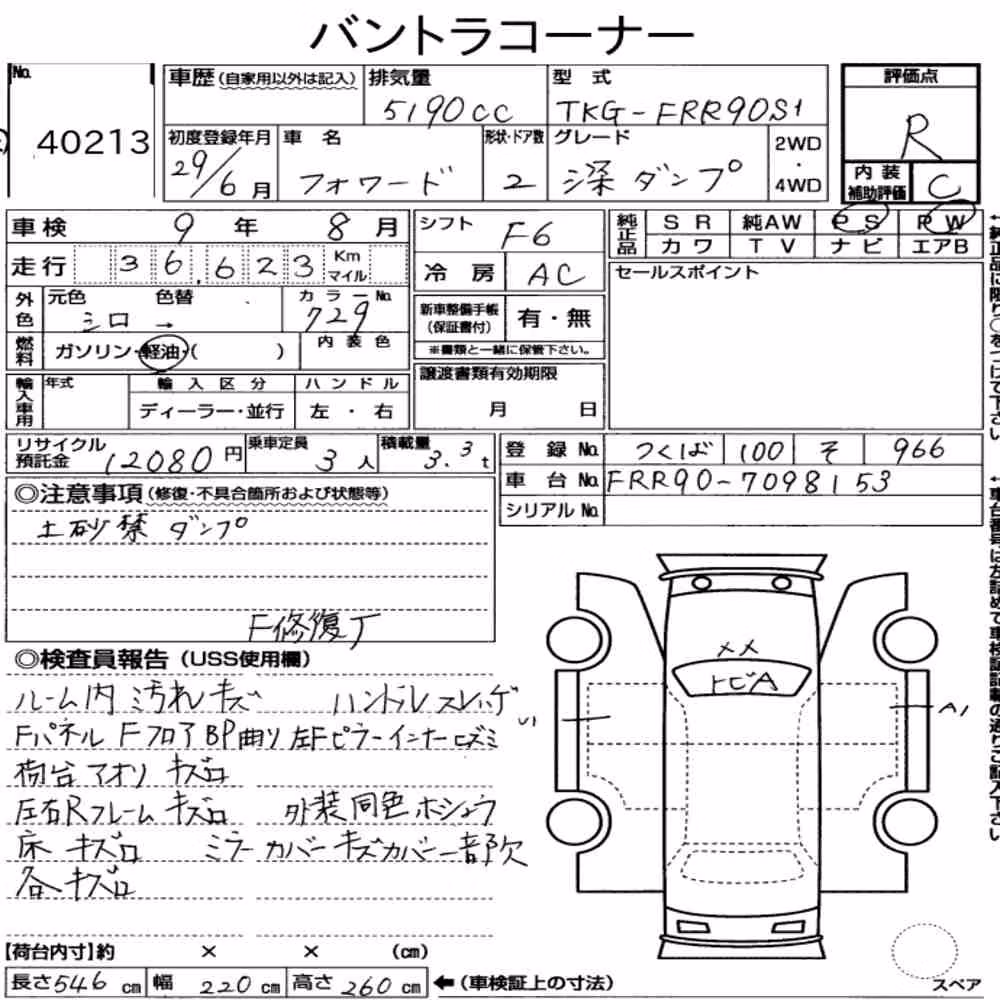 バントラコーナー
No. 40213
車歴(自家用以外は記入) 排気量 5190cc 型式 TKG-FRR90S1
初度登録年月 29/6月 車名 フォワード 形状・ドア数 2 グレード 深ダンプ 2WD・4WD
評価点 R
内装補助評価 C
車検 9年 8月
走行 36,623 Km マイル
外色 元色 シロ → 色替 カラーNo. 729
燃料 ガソリン・軽油・( ) 内装色
輸入車用 年式 輸入区分 ディーラー・並行 ハンドル 左・右
シフト F6
冷房 AC
新車整備手帳(保証書付) 有・無
※書類と一緒に保管下さい。
譲渡書類有効期限 月 日
純正品 SR 純AW PS PW
カワ TV ナビ エアB
セールスポイント
リサイクル預託金 12080円 乗車定員 3人 積載量 3.3t
登録No. つくば 100 そ 966
車台No. FRR90-7098153
シリアルNo.
◎注意事項(修復・不具合箇所および状態等)
土砂禁ダンプ
F修復丁
◎検査員報告(USS使用欄)
ルーム内 汚れキズ ハンドルスレハゲ
Fパネル Fフロア BP曲り 左Fピラーインナーヒズミ
荷台アオリ キズロ
左右Rフレーム キズロ 外装同色ホシュウ
床 キズロ ミラーカバーキズカバー一部欠
各キズロ
××
トビA
A1
【荷台内寸】約 × × (cm)
長さ546cm 幅220cm 高さ260cm ←(車検証上の寸法)
スペア